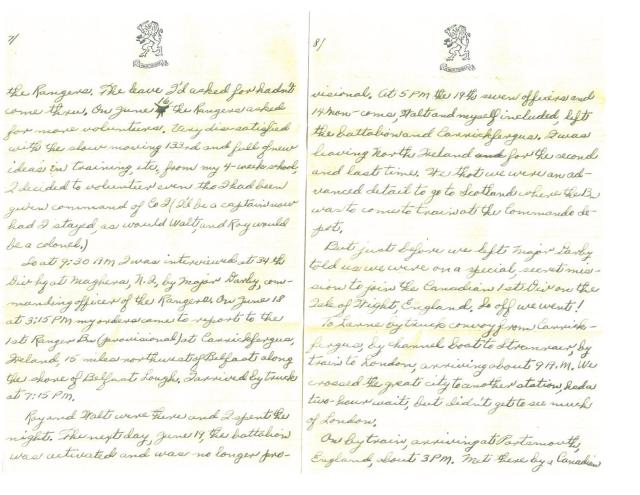 7/
the Rangers. The leave I'd asked for hadn't
come thru. On June 16 the Rangers asked
for more volunteers. Very dissatisfied
with the slow moving 133rd and full of new
ideas in training, etc, from my 4-week school,
I decided to volunteer even tho I had been
given command of Co I (I'd be a captain now
had I stayed, as would Walt, and Ray would
be a colonel.)
So at 9:30 AM I was interviewed at 34th
Div hq at Maghera, N.I, by Major Darby, com-
manding officer of the Rangers. On June 18
at 3:15 PM my orders came to report to the
1st Ranger Bn (provisional) at Carrickfergus,
Ireland, 15 miles northwest of Belfast along
the shore of Belfast Lough. I arrived by truck
at 7:15 PM.
Ray and Walt were there and I spent the
night. The next day, June 19, the battalion
was activated and was no longer pro-
8/
visional. At 5 PM the 19th seven officers and
14 non-coms, Walt and myself included, left
the battalion and Carrickfergus. I was
leaving North Ireland and for the second
and last time. It's that we were an ad-
vanced detail to go to Scotland where the Bn
was to come to train at the Commando de-
pot.
But just before we left Major Darby
told us we were on a special, secret mis-
sion to join the Canadian 1st Div on the
Isle of Wight, England. So off we went!
To Larne by truck convoy from Carrick-
fergus, by channel boat to Stranraer, by
train to London, arriving about 9 A.M. We
crossed the great city to another station, had a
two-hour wait, but didn't get to see much
of London.
On by train, arriving at Portsmouth,
England, about 3 PM. Met there by a Canadian